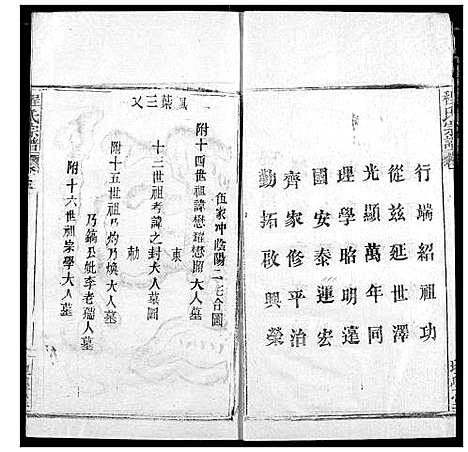 程氏宗譜
行端紹祖功
從兹延世澤
光顯萬年同
理學昭明遠
國安泰運宏
齊家修平治
勤拓啟興榮
一鳳葉三乂
伍家冲陰陽二宅合圖
附十四世祖諱懋璀懋照大人墓
東
十三世祖考諱之封大人墓圖
勅
附十五世祖乃灼乃煥大人墓
乃鎬公妣李老孺人墓
附十六世祖宗學大人墓
程氏宗譜